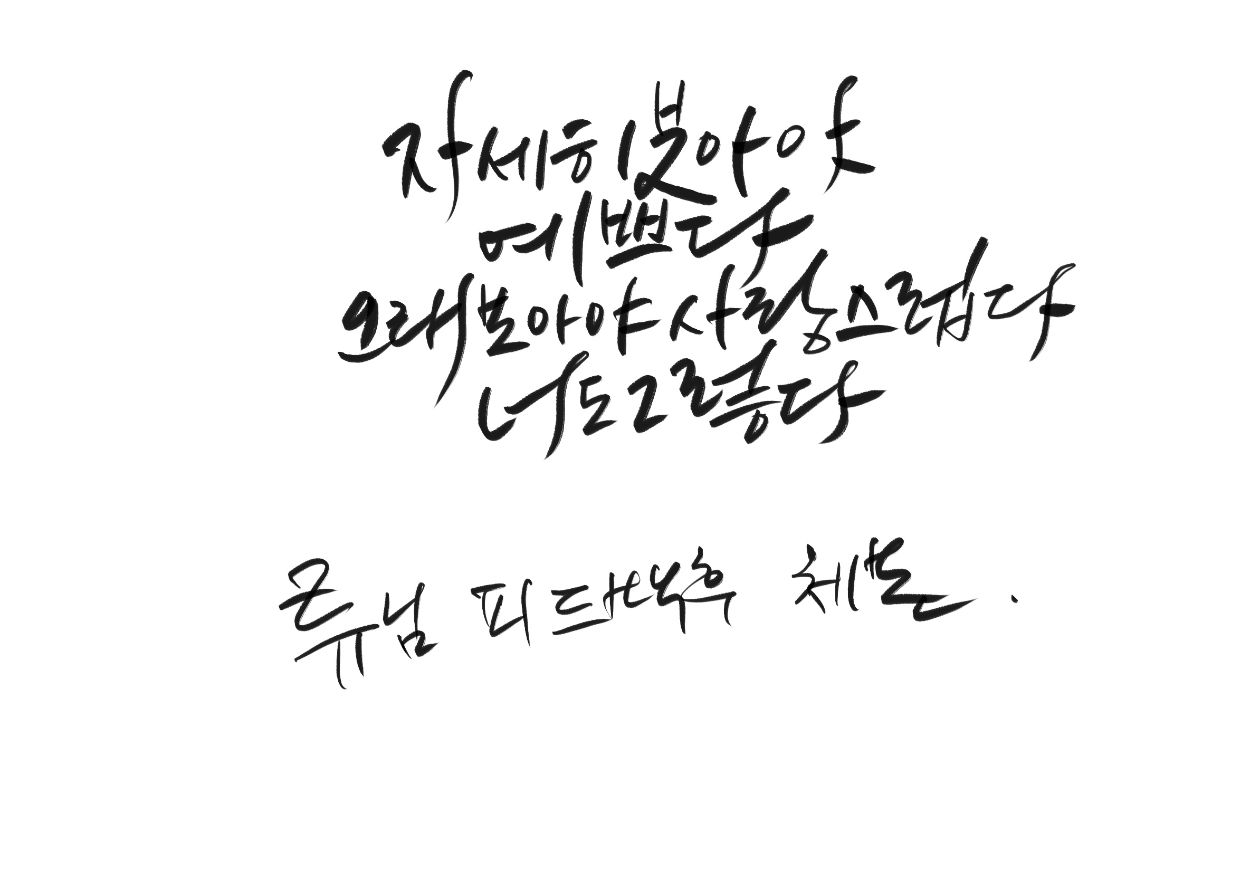 자세히 보아야
예쁘다
오래 보아야 사랑스럽다
너도 그렇다
류님 피드백 후 체본.